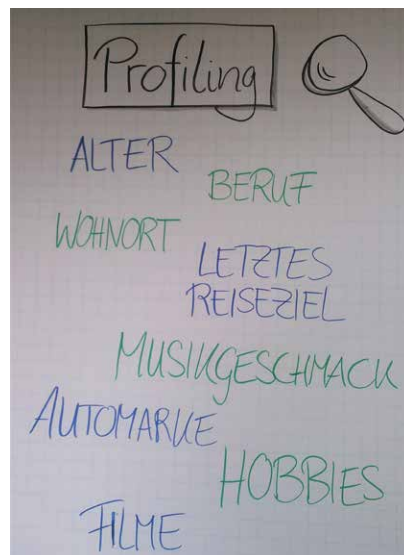 Profiling
ALTER
BERUF
WOHNORT
LETZTES
REISEZIEL
MUSIKGESCHMACK
AUTOMARKE
HOBBIES
FILME